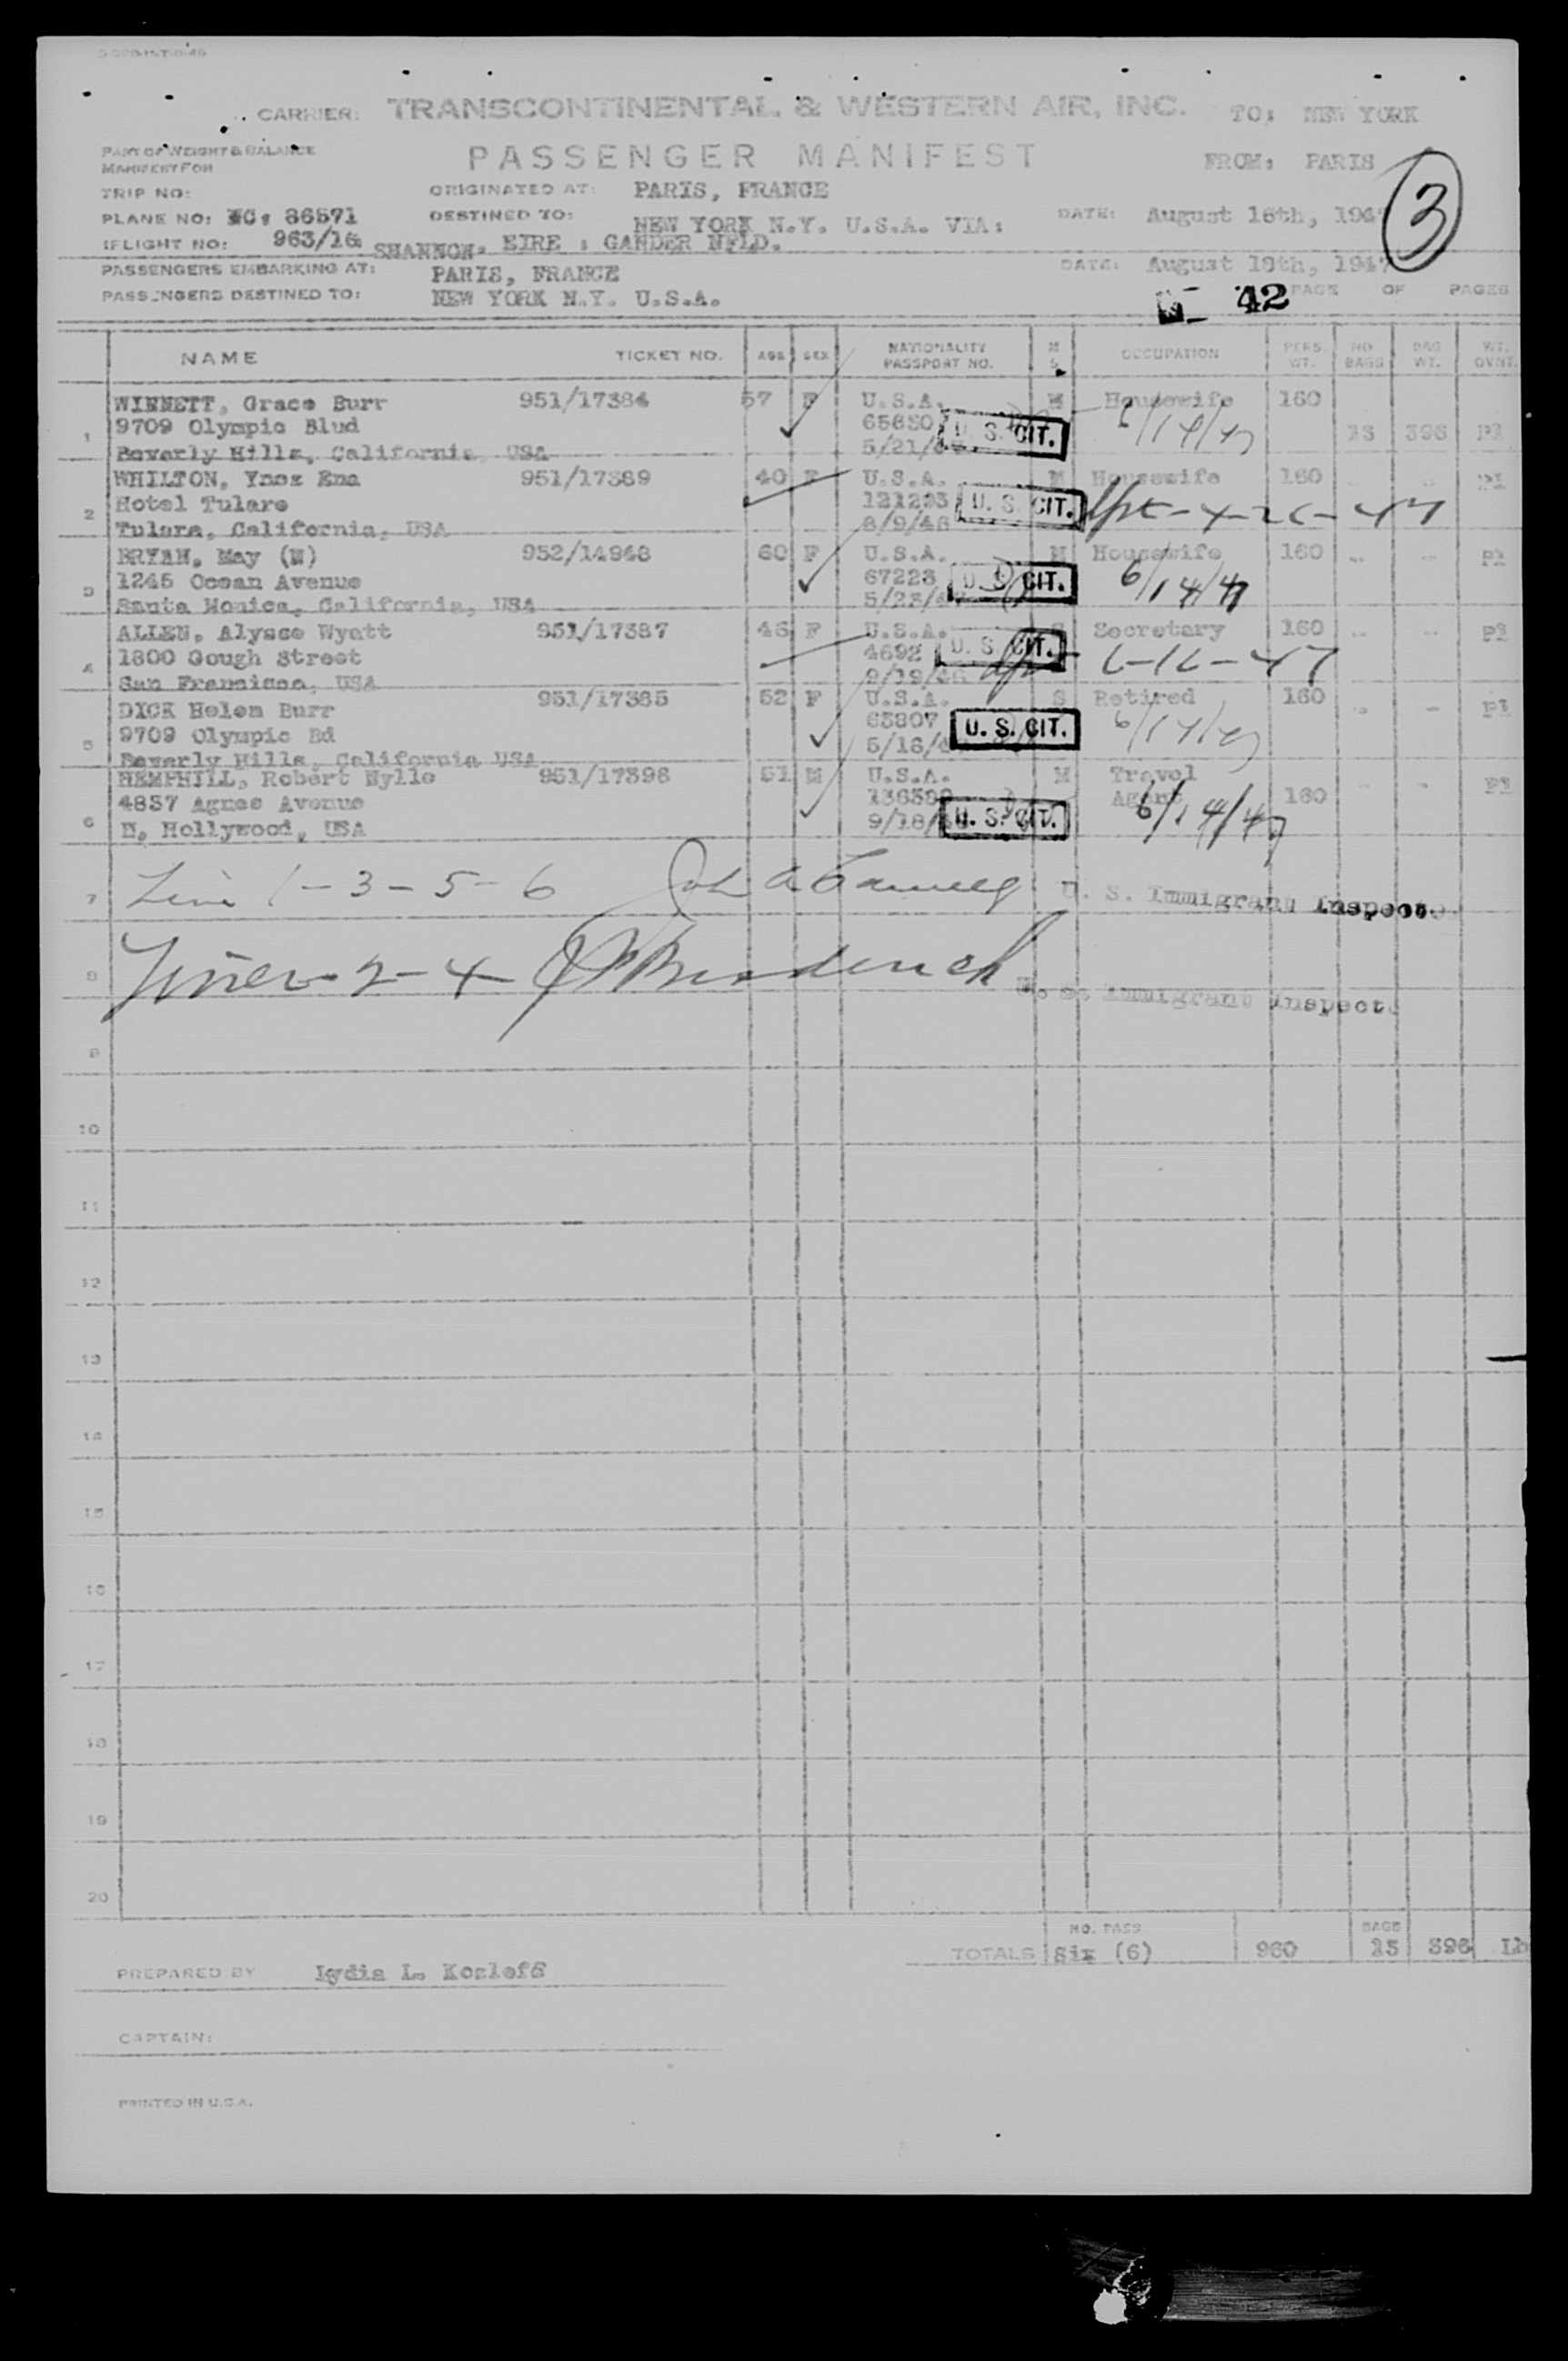 CARRIER: TRANSCONTINENTAL & WESTERN AIR, INC. TO: NEW YORK
PART OF WEIGHT & BALANCE
MANIFEST FOR
PASSENGER MANIFEST
FROM: PARIS
3
TRIP NO:
ORIGINATED AT: PARIS, FRANCE
PLANE NO: NC: 86571
DESTINED TO: NEW YORK N.Y. U.S.A. VIA:
DATE: August 16th, 1947
FLIGHT NO: 963/16
SHANNON, EIRE : GANDER NFLD.
PASSENGERS EMBARKING AT: PARIS, FRANCE
DATE: August 18th, 1947
PASSENGERS DESTINED TO: NEW YORK N.Y. U.S.A.
42 PAGE OF PAGES
NAME TICKET NO. AGE SEX NATIONALITY PASSPORT NO. M S OCCUPATION PERS. WT. NO. BAGS BAG WT. WT. OVHT.
1 WINNETT, Grace Burr 951/17384 57 F U.S.A. M Housewife 160
9709 Olympic Blud 65830 U. S. CIT. 6/14/47 396
Beverly Hills, California, USA 5/21/
2 WHILTON, Ynez Ena 951/17389 40 F U.S.A. M Housewife 160
Hotel Tulare 121223 U. S. CIT. 4-26-47
Tulare, California, USA 8/9/46
3 BRYAN, May (M) 952/14948 60 F U.S.A. M Housewife 160
1245 Ocean Avenue 67223 U. S. CIT. 6/14/47
Santa Monica, California, USA 5/23/
4 ALLEN, Alysse Wyatt 951/17387 46 F U.S.A. S Secretary 160
1800 Gough Street 4692 U. S. CIT. 6-16-47
San Francisco, USA 9/19/46
5 DICK Helen Burr 951/17385 52 F U.S.A. S Retired 160
9709 Olympic Bd 63807 U. S. CIT. 6/14/47
Beverly Hills, California USA 5/16/
6 HEMPHILL, Robert Wylle 951/17398 51 M U.S.A. M Travel
4837 Agnes Avenue Agent 160
N. Hollywood, USA 9/18/ U. S. CIT. 6/14/47
7 Line 1-3-5-6 U. S. Immigrant Inspect
8 Lines-2-4 U. S. Immigrant Inspect.
9
10
11
12
13
14
15
16
17
18
19
20
NO. PASS BAGS
TOTALS Six (6) 960 396 Lb
PREPARED BY Lydia L. Kozloff
CAPTAIN:
PRINTED IN U.S.A.